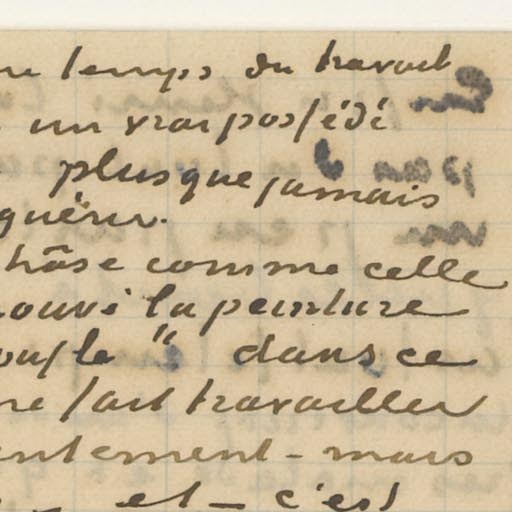 temps du travail
un vrai possédé
plus que jamais
guérir.
hâse comme celle
ouvé la peinture
ouffle" dans ce
me fait travailler
entement - mais
- et - c'est